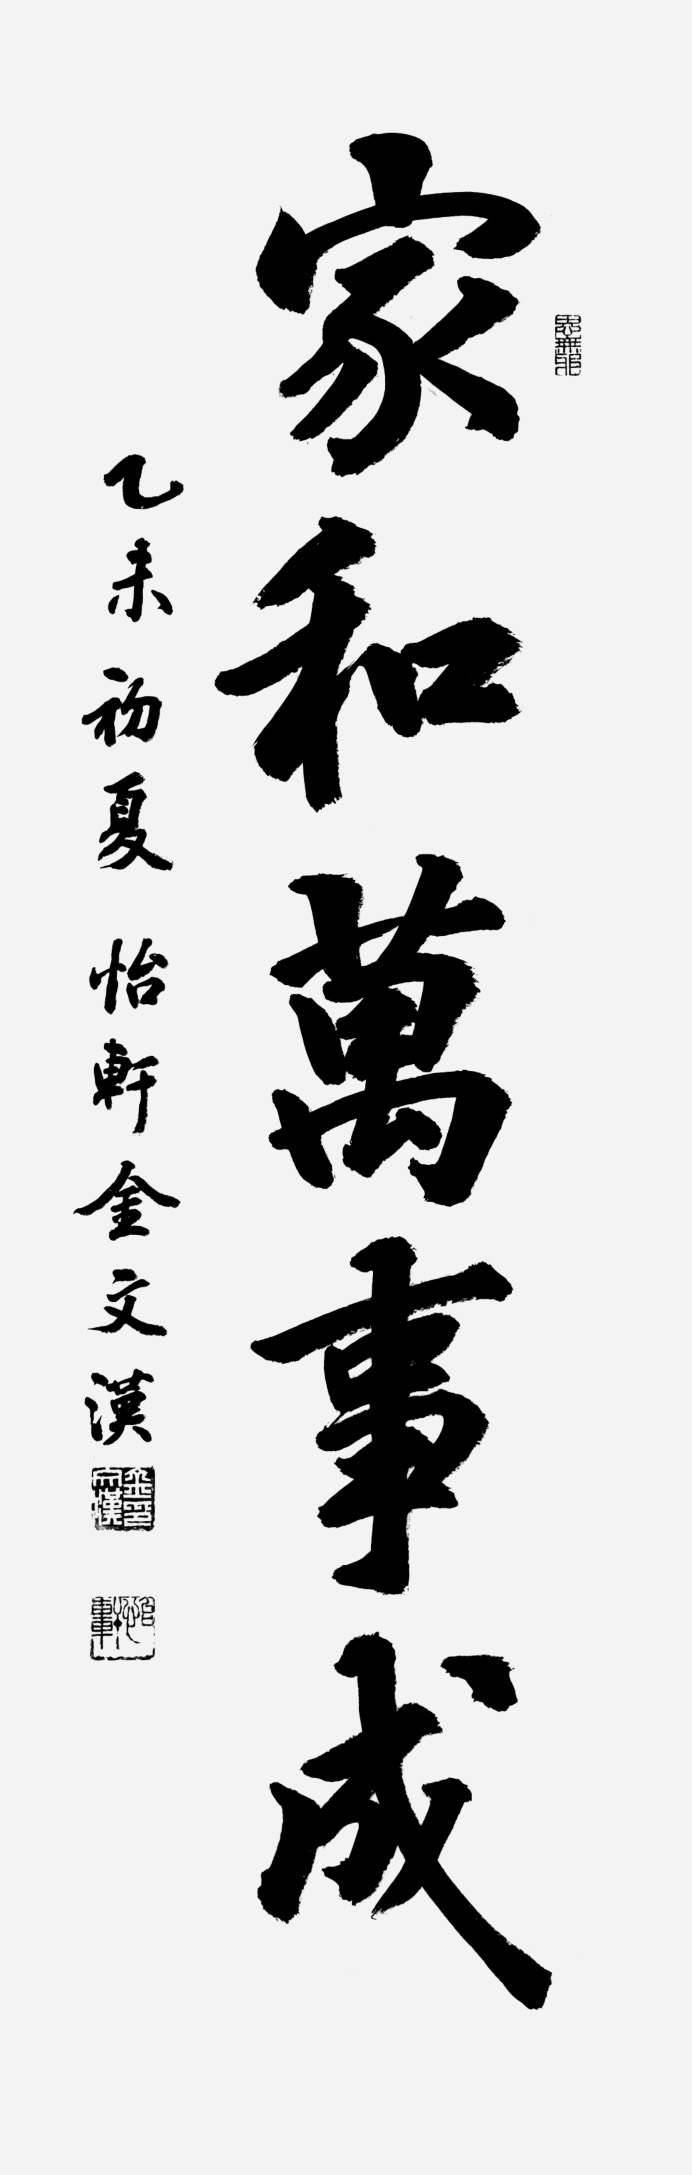 家和萬事成
思無邪
乙未初夏 怡軒金文漢
金文漢印
怡軒